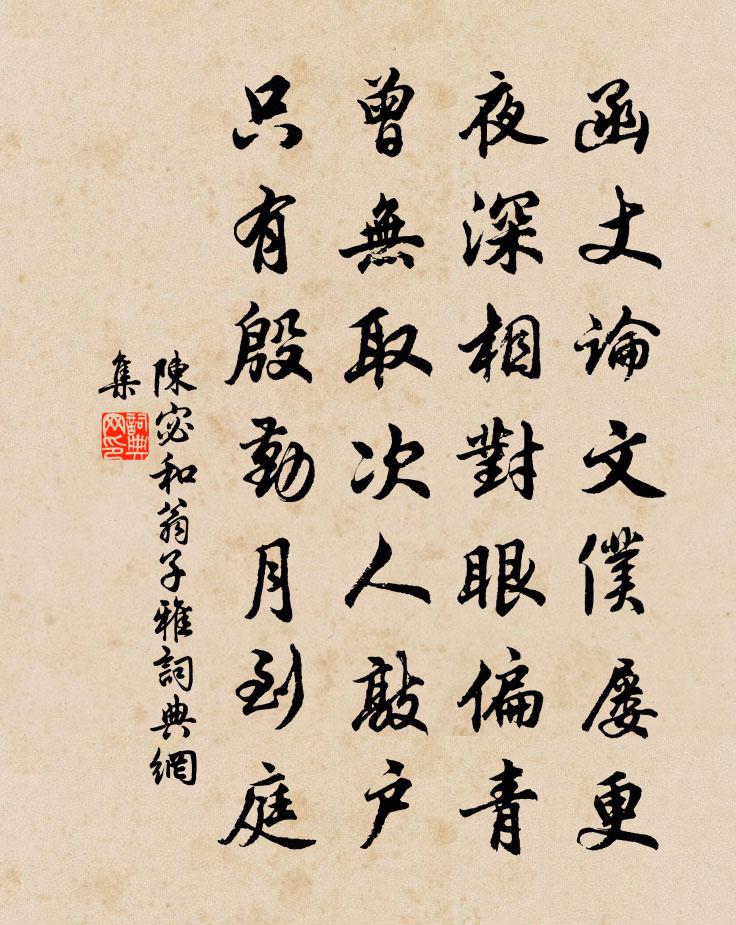 函丈論文僕屡更
夜深相對眼偏青
曾無取次人敲户
只有殷勤月到庭
陳宓和翁子雅詞典網
集
詞典
网印